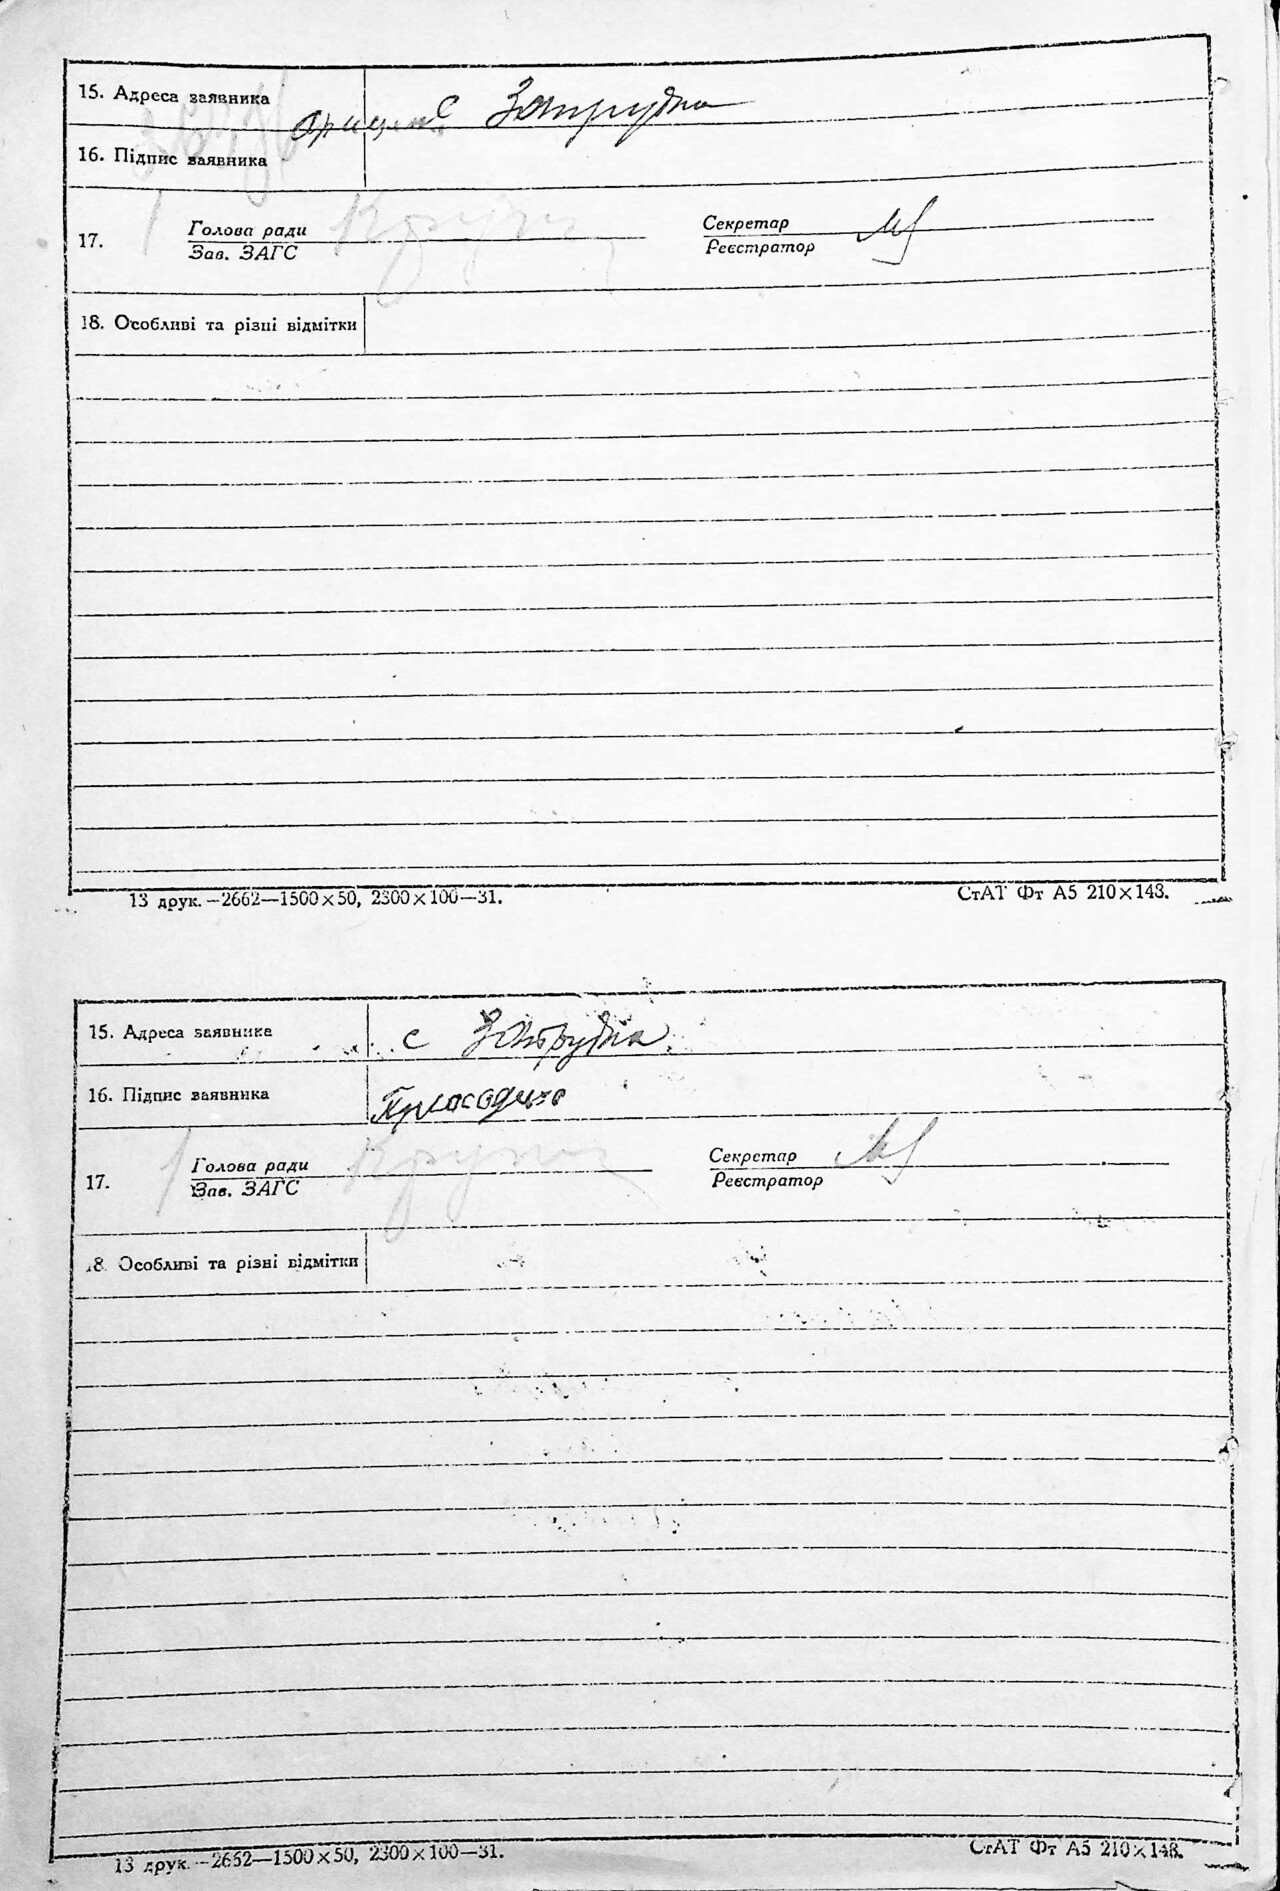 15. Адреса заявника с Запрудка
16. Підпис заявника
17. Голова ради Секретар
Зав. ЗАГС Реєстратор
18. Особливі та різні відмітки
13 друк.—2662—1500×50, 2300×100—31. СтАТ Фт А5 210×148.
15. Адреса заявника с Запрудка
16. Підпис заявника
17. Голова ради Секретар
Зав. ЗАГС Реєстратор
18. Особливі та різні відмітки
13 друк.—2652—1500×50, 2300×100—31. СтАТ Фт А5 210×148.